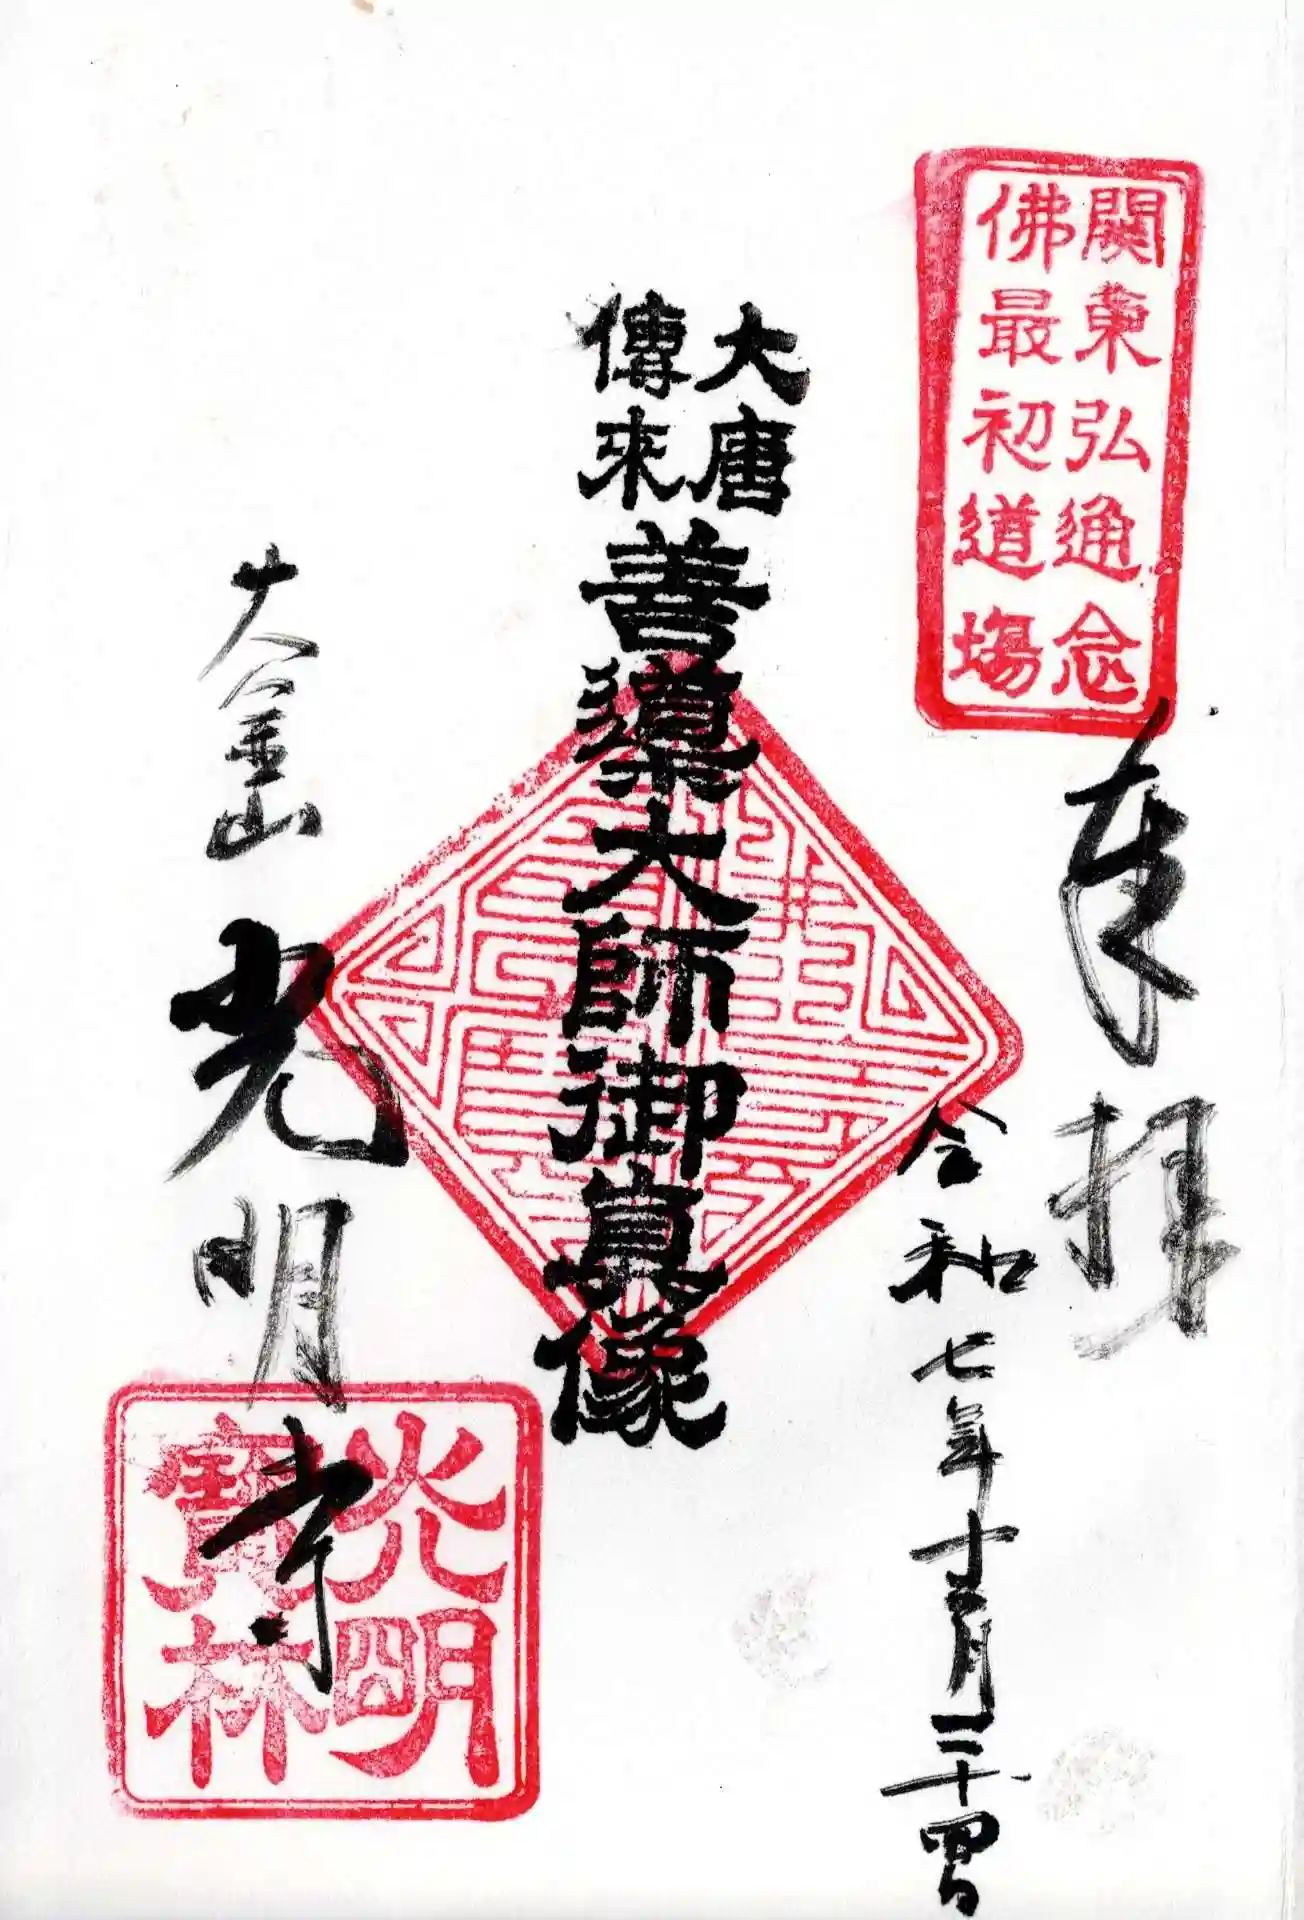 關東弘通念
佛最初道場
奉拝
令和七年十二月二十四日
大唐
傳來
善導大師御真像
大金山
光明寺
光明
寶林